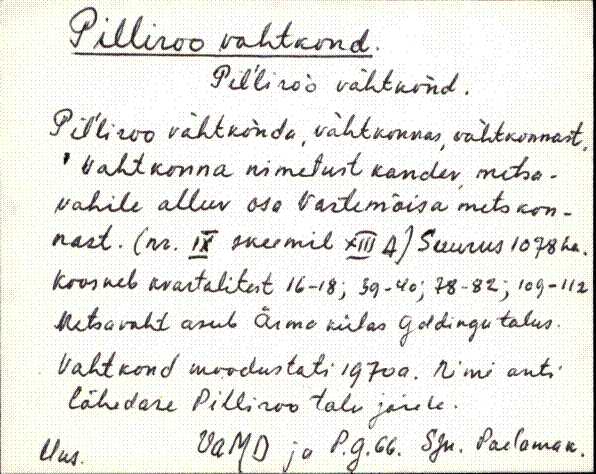 Pilliroo vahtkond.
Pil'liroo vahtkond.
Pil'liroo vahtkonda, vahtkonnas, vahtkonnast,
Vahtkonna nimetust kandev metsa-
vahile alluv osa Vastemõisa metskon-
nast. (nr. IX skeemil XIII A) Suurus 1078 ha.
Koosneb kvartalitest 16-18; 39-40; 78-82; 109-112
Metsavaht asub Ärma külas Goldingu talus.
Vahtkond moodustati 1970 a. Nimi anti
lähedase Pilliroo talu järele.
Uus. VaMD ja P.g.66. Sjn.